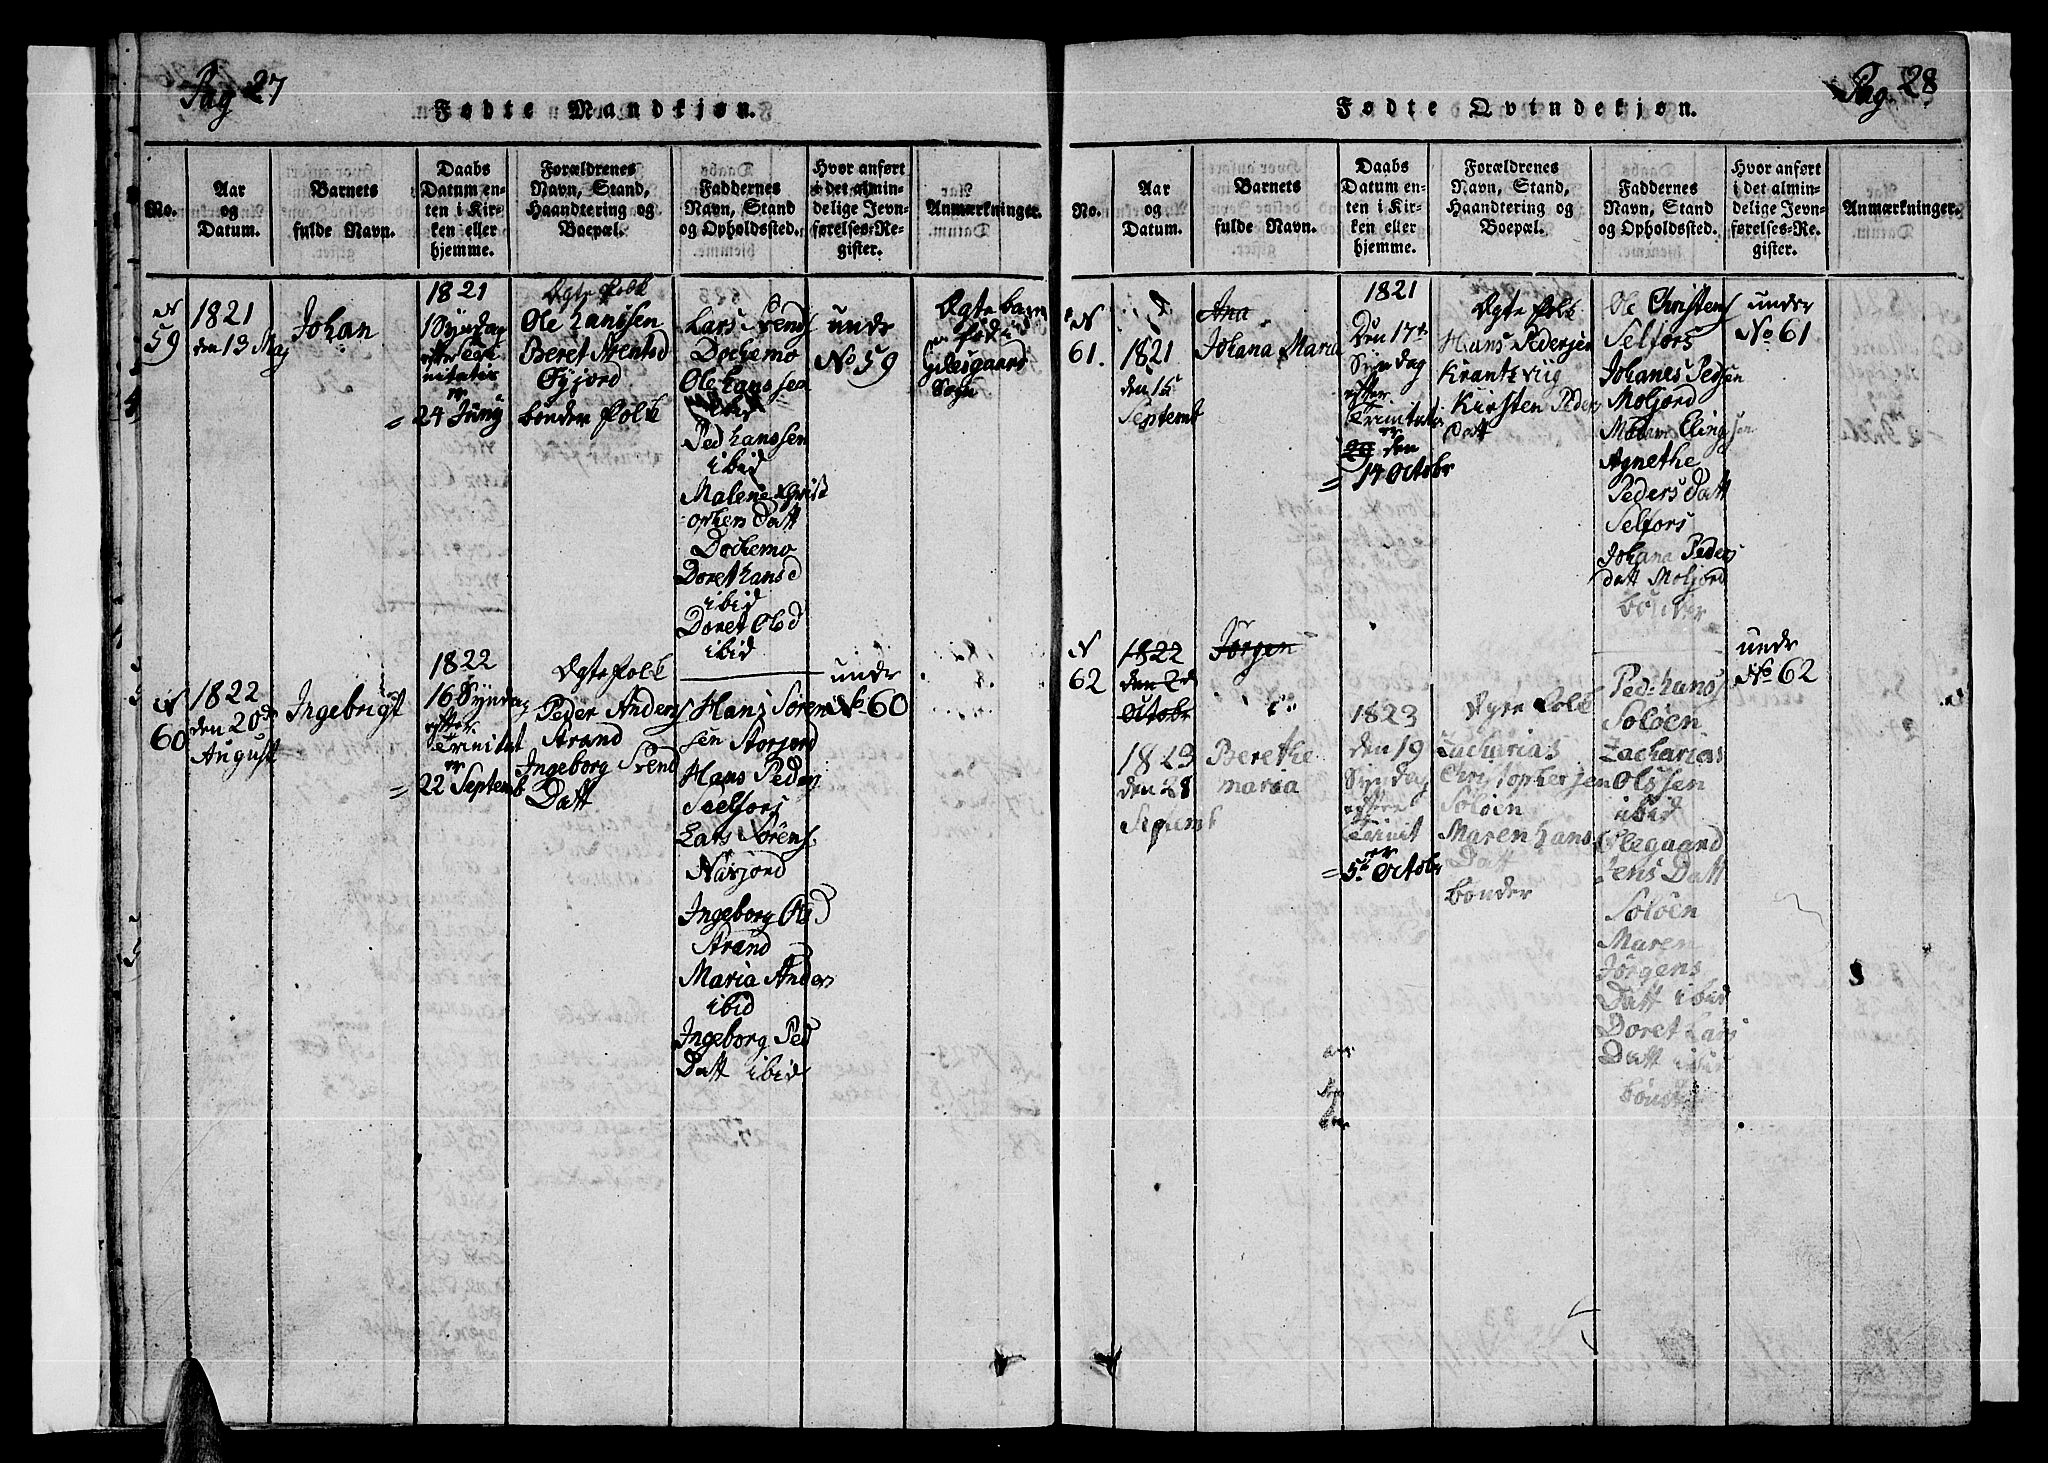 Pag 27
Fødte Mandkjøn.
No.
Aar
og
Datum.
Barnets
fulde Navn.
Daabs
Datum en-
ten i Kir-
ken eller
hjemme.
Forældrenes
Navn, Stand,
Haandtering og
Boepæl.
Faddernes
Navn, Stand
og Opholdssted.
Hvor anført
i det almin-
delige Jevn-
førelses-Re-
gister.
Anmærkninger.
N
59
1821
den 13 Maj
Johan
1821
1 Syndag
efter
nitatis
er
= 24 Juny
Ægte Folk
Ole Hanssen
Beret
bønder Folk
Lars Svends
Dochemo
Ole Hanssen
ibid
Ped Hanssen
ibid
Malene Christ
ophers Datt
Dochemo
Doret Hansd
ibid
Doret Olsd
ibid
unde
No 59
Ægte barn
Sogn
N
60
1822
den 20de
August
Ingebrigt
1822
16 Syndag
efter
Trinitat
er
= 22 Septemb
Ægte Folk
Peder Anders
Strand
Ingeborg Svend
Datt
Hans Søren
sen Storjord
Hans Peders
Selfors
Lars Sørens
Ingeborg Olsd
Strand
Maria Anders
ibid
Ingeborg Ped
Datt ibid
unde
No 60
Pag. 28
Fødte Qvindekjøn.
No.
Aar
og
Datum.
Barnets
fulde Navn.
Daabs
Datum en-
ten i Kir-
ken eller
hjemme.
Forældrenes
Navn, Stand,
Haandtering og
Boepæl.
Faddernes
Navn, Stand
og Opholdssted.
Hvor anført
i det almin-
delige Jevn-
førelses-Re-
gister.
Anmærkninger.
N
61.
1821
den 15
Septemb
Ana
Johana Maria
1821
Den 17de
Syndag
efter
Trinitatis
er
29 den
= 14 Octobr
Ægte Folk
Hans Pedersen
Krantzvig
Kirsten Peders
Datt
Ole Christens
Selfors
Johanes Pedsen
Moljord
Elingsen
Agnethe
Peders Datt
Selfors
Johana Peders
datt Moljord
bønder
under
No 61
N
62
1822
den 2d
Octobr
1823
den 28
Septemb
Jørgen
Berethe
maria
1823
den 19
Syndag
efter
Trinit
er
= 5te Octobr
Ægte Folk
Zacharias
Christophersen
Soløen
Maren Hans
Datt
bønder
Ped: Hans
Soløen
Zacharias
Olssen
ibid
Olegaard
Jens Datt
Soløen
Maren
Jørgens
Datt ibid
Doret Lars
Datt ibid
bønder
unde
No. 62